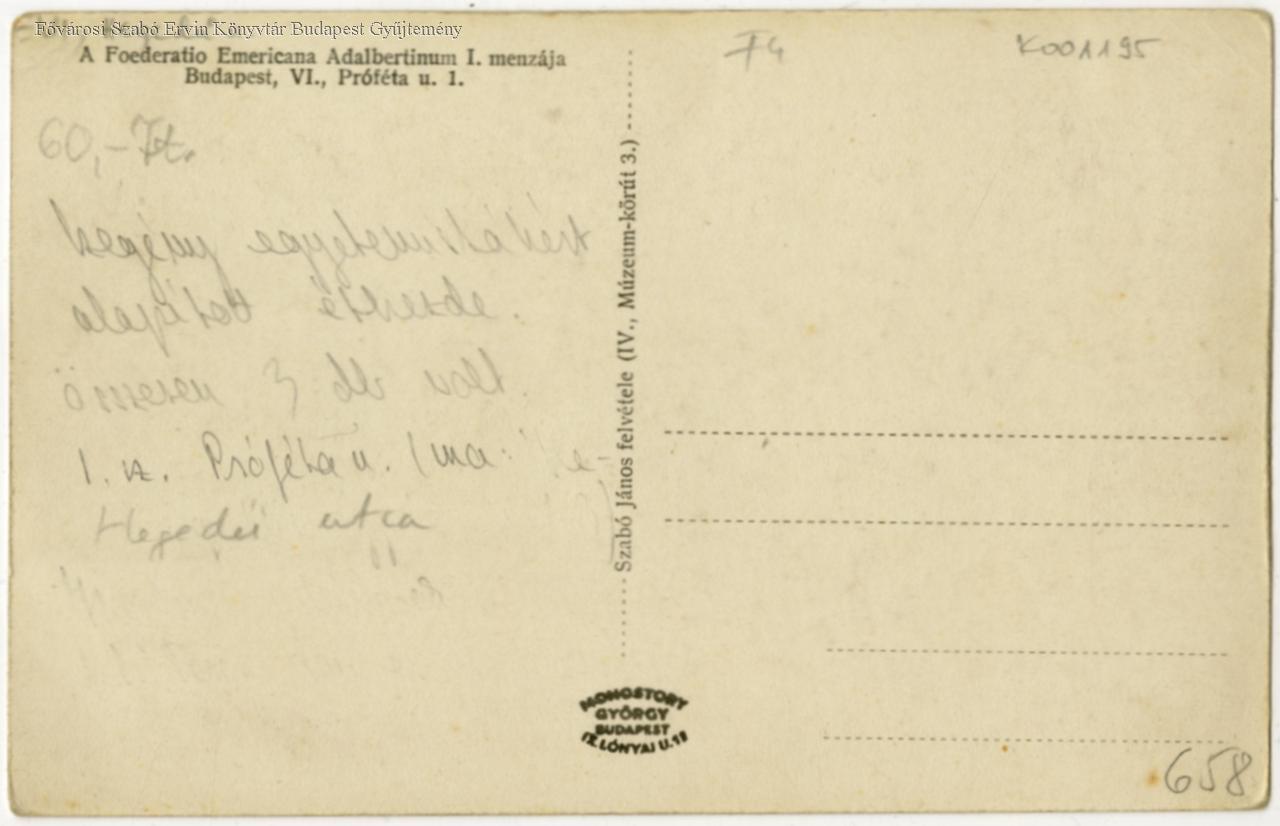 Fővárosi Szabó Ervin Könyvtár Budapest Gyűjtemény
A Foederatio Emericana Adalbertinum I. menzája
Budapest, VI., Próféta u. 1.
60,- Ft.
Szegény egyetemistákért
alapított étkezde.
összesen 3 db volt.
1. sz. Próféta u. (ma
Hegedű utca
Szabó János felvétele (IV., Múzeum-körút 3.)
K001195
MONOSTORY
GYÖRGY
BUDAPEST
IX. LÓNYAI U. 18
658